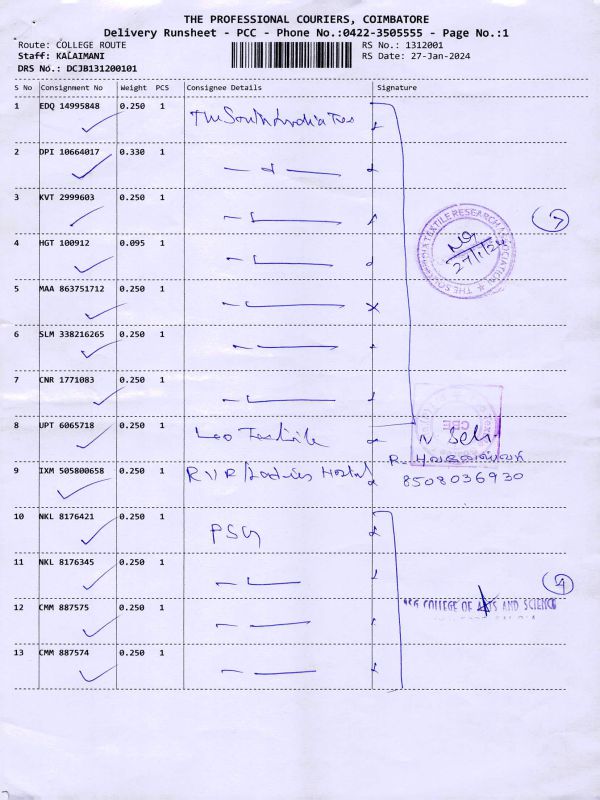 THE PROFESSIONAL COURIERS, COIMBATORE
Delivery Runsheet - PCC - Phone No.:0422-3505555 - Page No.:1
Route: COLLEGE ROUTE RS No.: 1312001
Staff: KALAIMANI RS Date: 27-Jan-2024
DRS No.: DCJB131200101
S No Consignment No Weight PCS Consignee Details Signature
1 EDQ 14995848 0.250 1 The South India Tex
2 DPI 10664017 0.330 1
3 KVT 2999603 0.250 1
7
4 HGT 100912 0.095 1
THE SOUTH INDIA TEXTILE RESEARCH ASSOCIATION
27/1/24
5 MAA 863751712 0.250 1
6 SLM 338216265 0.250 1
7 CNR 1771083 0.250 1
CBE
8 UPT 6065718 0.250 1 Leo Textile
9 IXM 505800658 0.250 1 RVR Ladies Hostel
8508036930
10 NKL 8176421 0.250 1 PSG
11 NKL 8176345 0.250 1
4
12 CMM 887575 0.250 1
PSG COLLEGE OF ARTS AND SCIENCE
13 CMM 887574 0.250 1